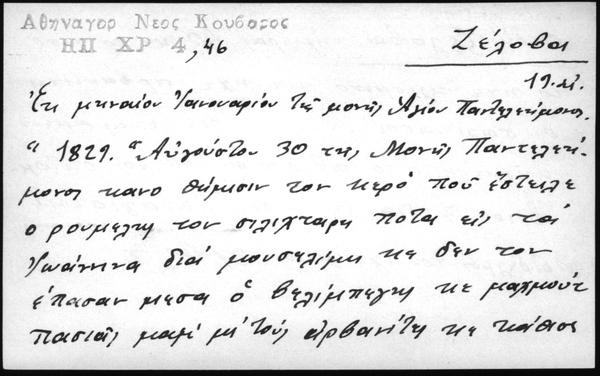 Αθηναγορ Νεος Κουβαρος
ΗΠ ΧΡ 4, 46
Ζέλοβα
19. αἰ.
Ἐκ μηναίου Ἰανουαρίου τῆς μονῆς Ἁγίου Παντελεήμονος.
“ 1829. “ Αὐγούστου 30 της Μονῆς Παντελεή-
μονος κανο θύμισιν τον κερό πού ἔστειλε
ο ρουμελης τον σιλιχταρη ποτα εἰς τά
Ἰωάννινα διά μουσελίμη κε δεν τον
έπασαν μεσα ὁ βελίμπεγης κε μαχμούτ
πασιάς μαζί μέ τούς αρβανίτες κε κάθισε